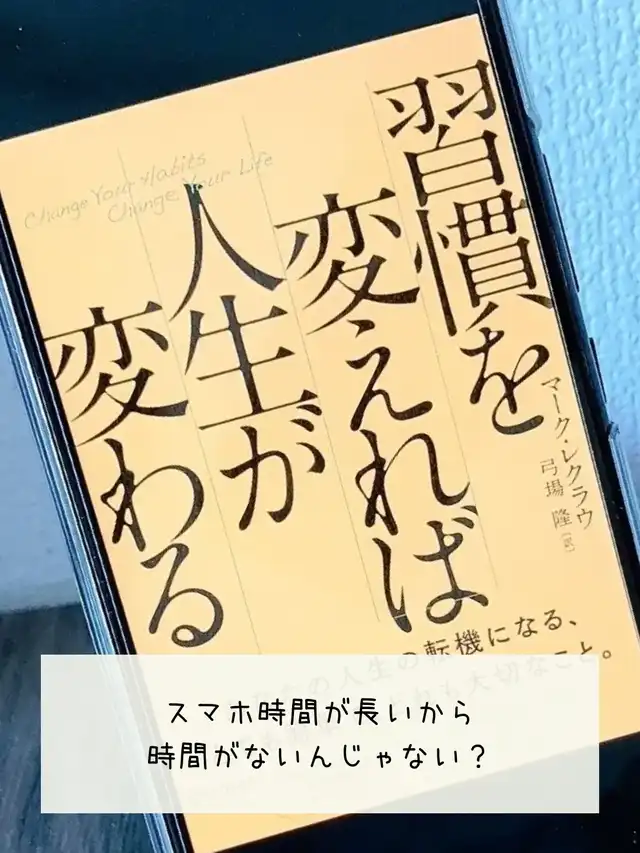 習慣を
変えれば
人生が
変わる
Change Your Habits
Change Your Life
マーク・レクラウ
弓場 隆［訳］
の人生の転機になる、
大切なこと。
スマホ時間が長いから
時間がないんじゃない？